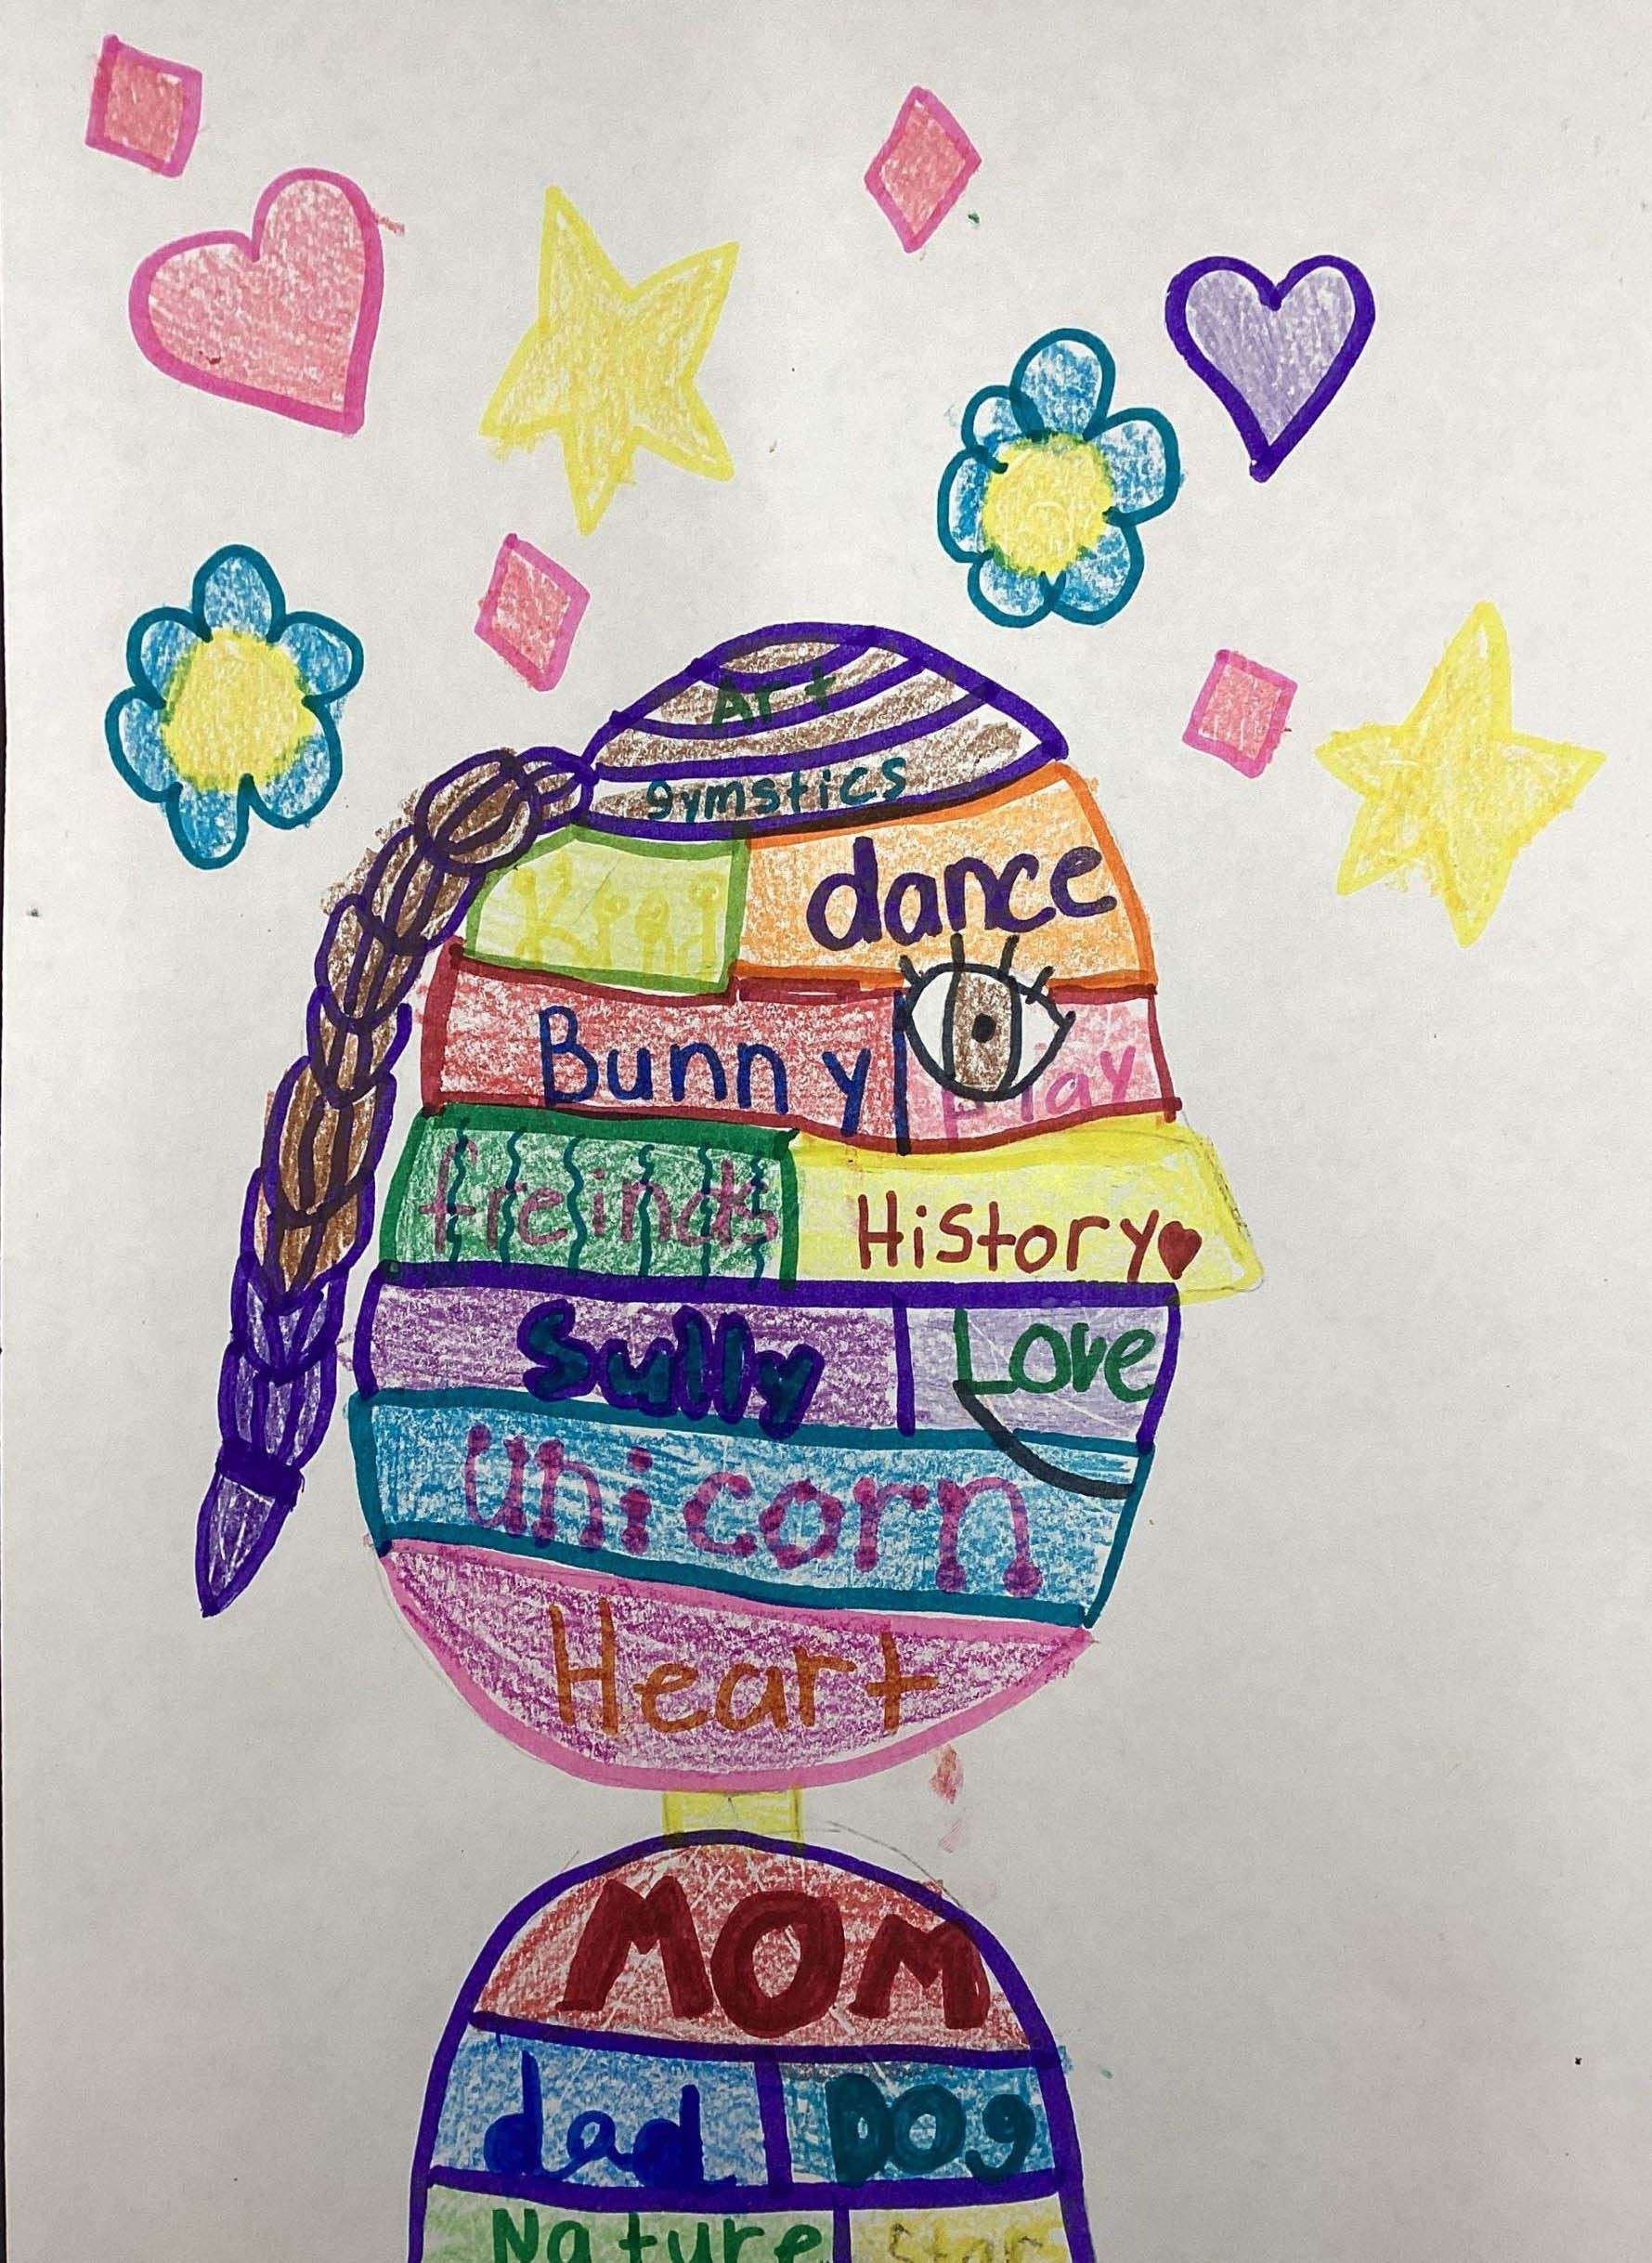 Art
gymstics
Kind dance
Bunny Play
freinds History
Sully Love
Unicorn
Heart
MOM
dad Dog
Nature Star